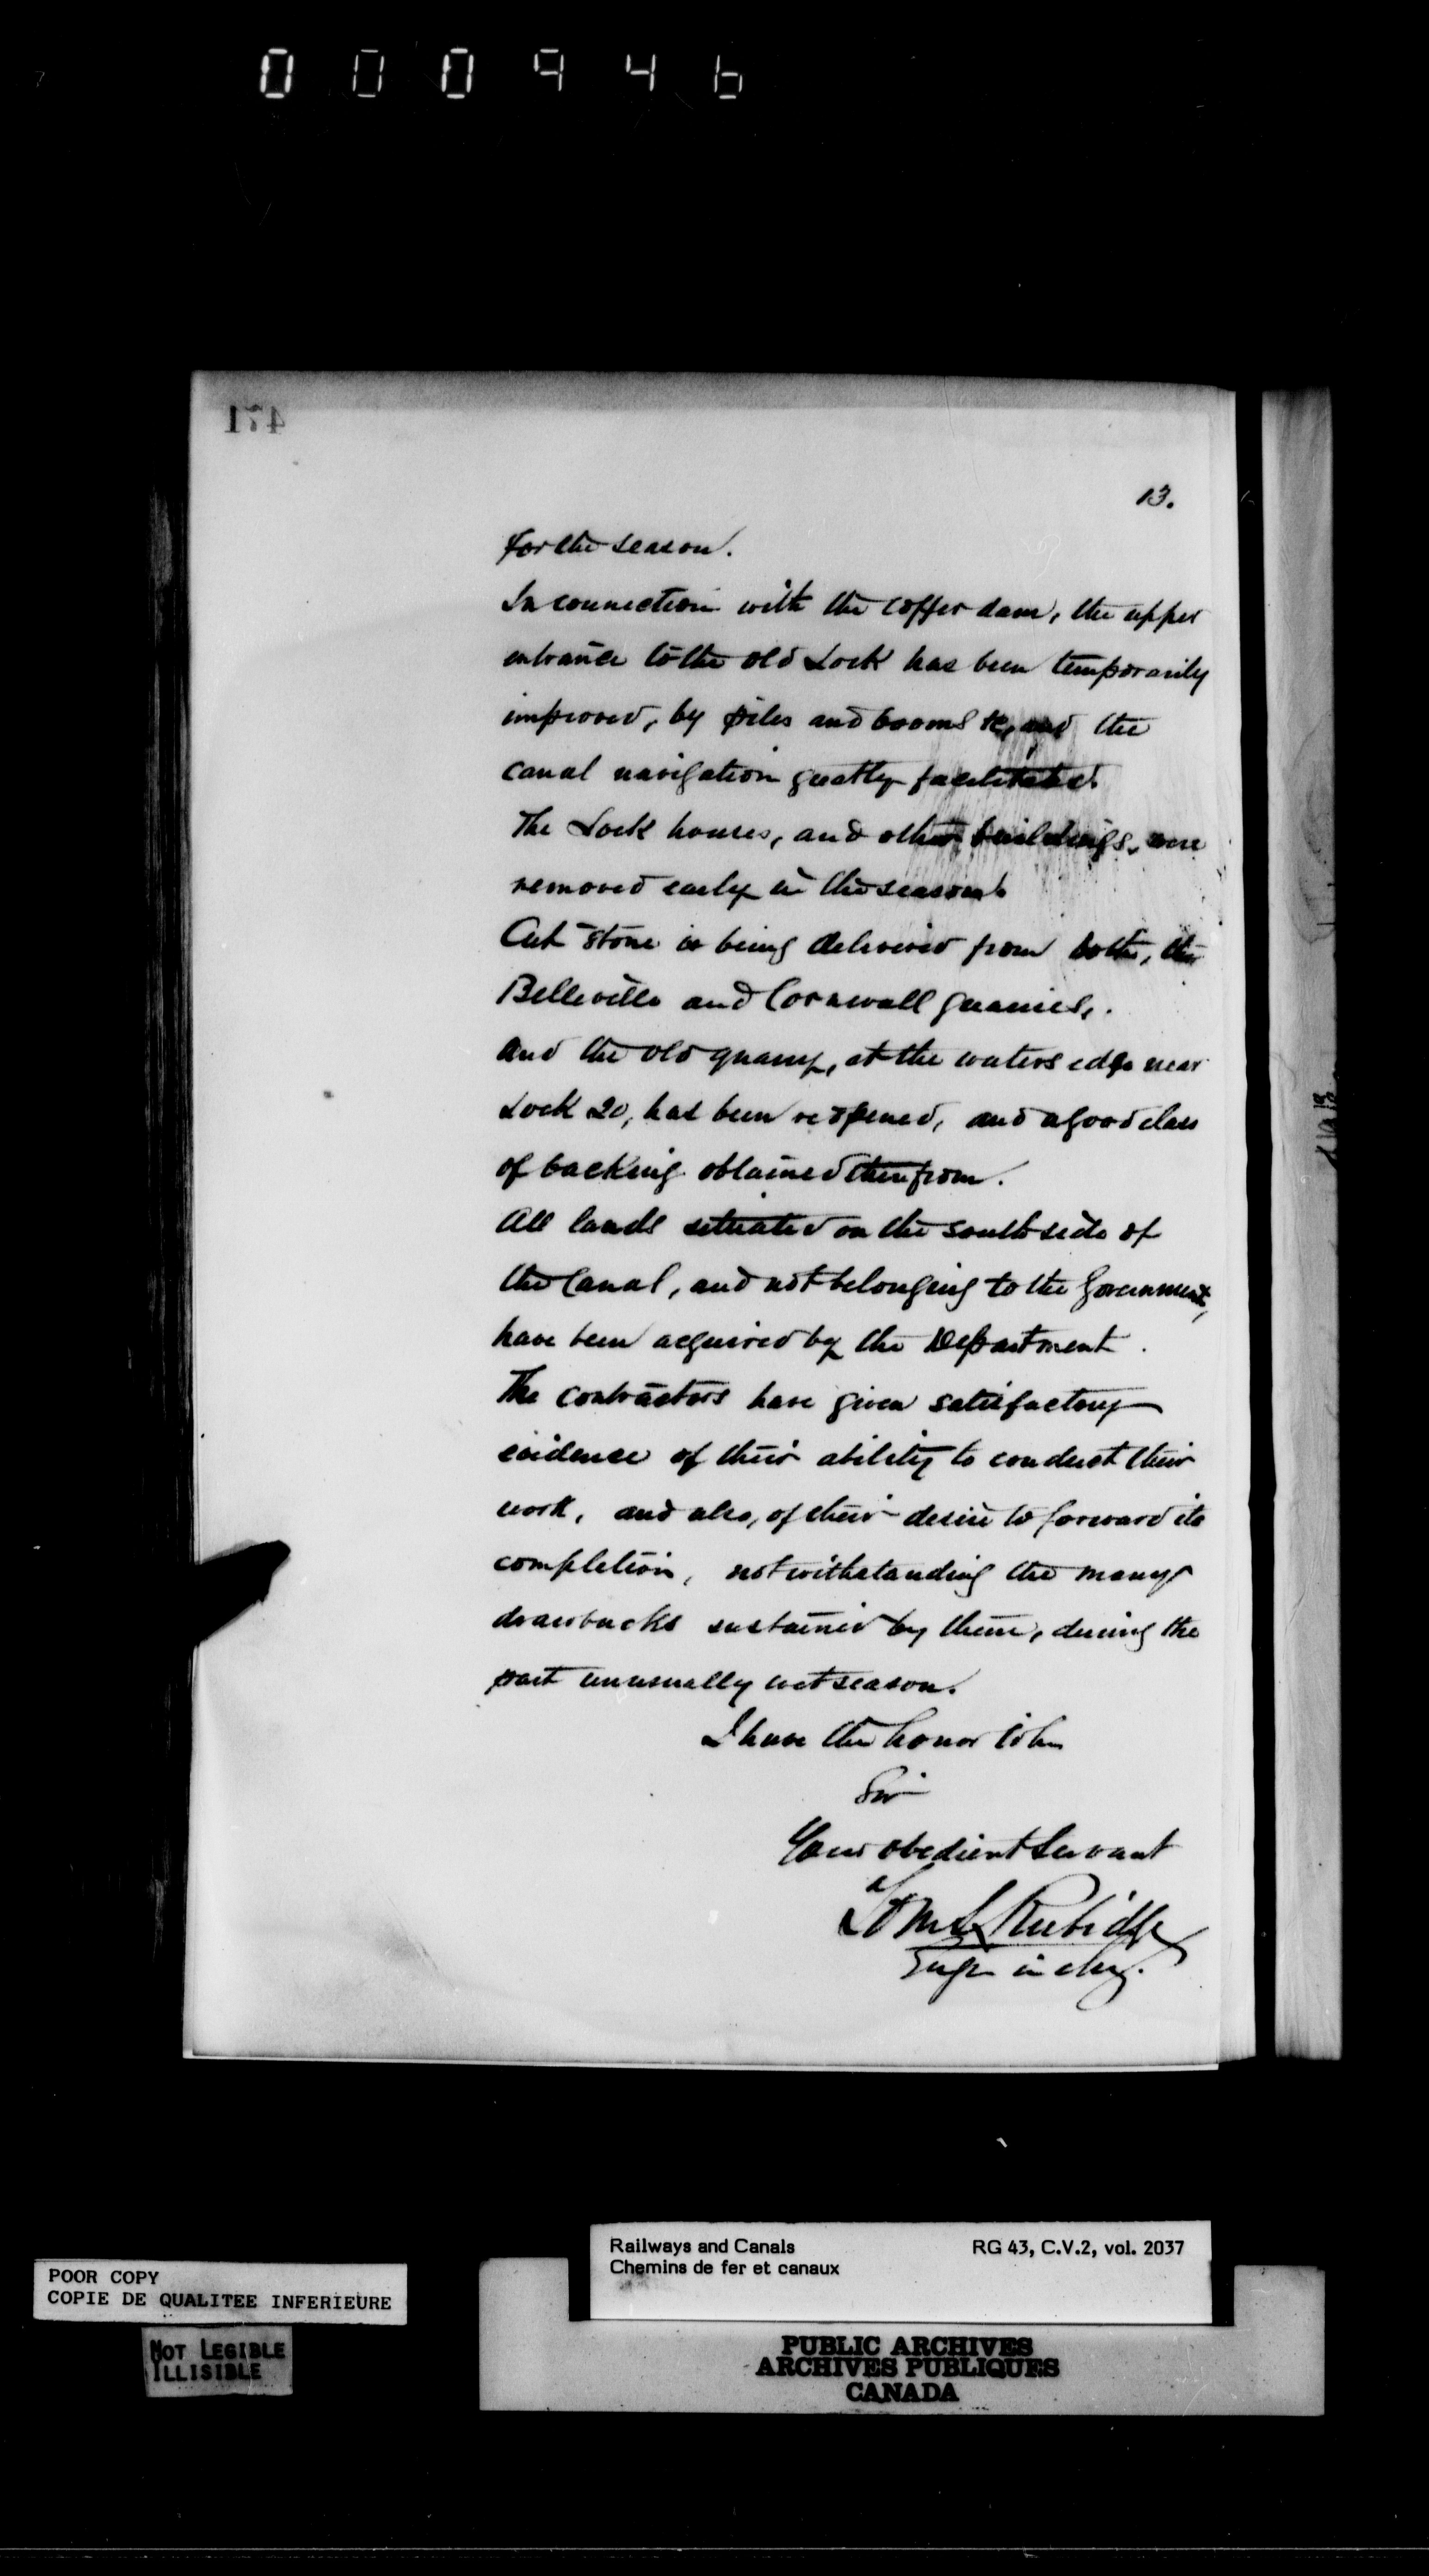 000946
471
13.
for the season.
In connection with the coffer dam, the upper
entrance to the old Lock has been temporarily
improved, by piles and booms &c, and the
canal navigation greatly facilitated.
The Lock houses, and other buildings, were
removed early in the season.
Cut stone is being delivered from both, the
Belleville and Cornwall quarries,.
and the old quarry, at the waters edge near
Lock 20, has been reopened, and a good class
of backing obtained therefrom.
All lands situated on the south side of
the Canal, and not belonging to the Government,
have been acquired by the Department.
The contractors have given satisfactory
evidence of their ability to conduct their
work, and also, of their desire to forward its
completion, notwithstanding the many
drawbacks sustained by them, during the
past unusually wet season.
I have the honor to be
Sir
Your obedient Servant
Tom S Rubidge
Engr in chg.
Railways and Canals RG 43, C.V.2, vol. 2037
Chemins de fer et canaux
POOR COPY
COPIE DE QUALITEE INFERIEURE
NOT LEGIBLE
ILLISIBLE
PUBLIC ARCHIVES
ARCHIVES PUBLIQUES
CANADA